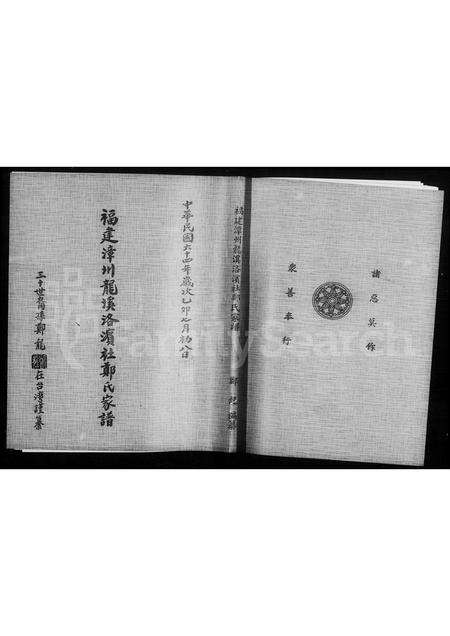 諸惡莫作
眾善奉行
福建漳州龍溪洛濱社鄭氏家譜
中華民國六十四年歲次乙卯七月初八日
福建漳州龍溪洛濱社鄭氏家譜
三十世裔孫鄭龍
在台灣謹纂
FamilySearch